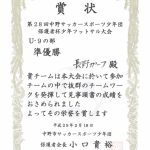 賞状
第28回中野サッカースポーツ少年団
保護者杯少年フットサル大会
U-9の部
準優勝
長野ガーフ殿
貴チームは本大会に於いて参加
チームの中で抜群のチームワーク
を発揮して見事頭書の成績を
おさめられました
よってその栄誉を賞します
平成25年2月10日
中野市サッカースポーツ少年団
保護者会長 小口貴裕